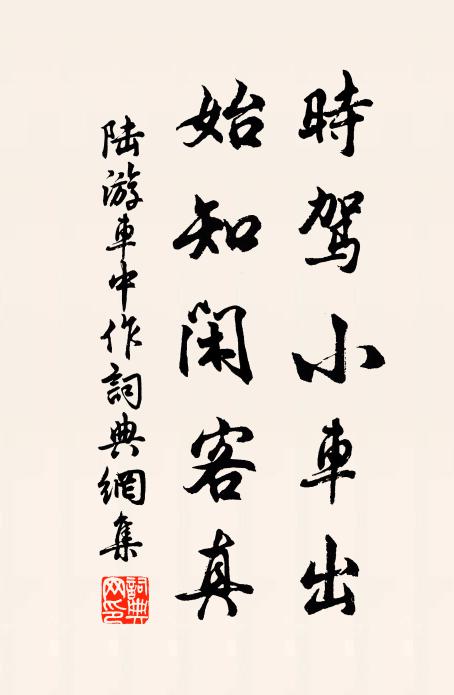 時駕小車出
始知閑客真
陸游車中作詞典網集
詞典网印